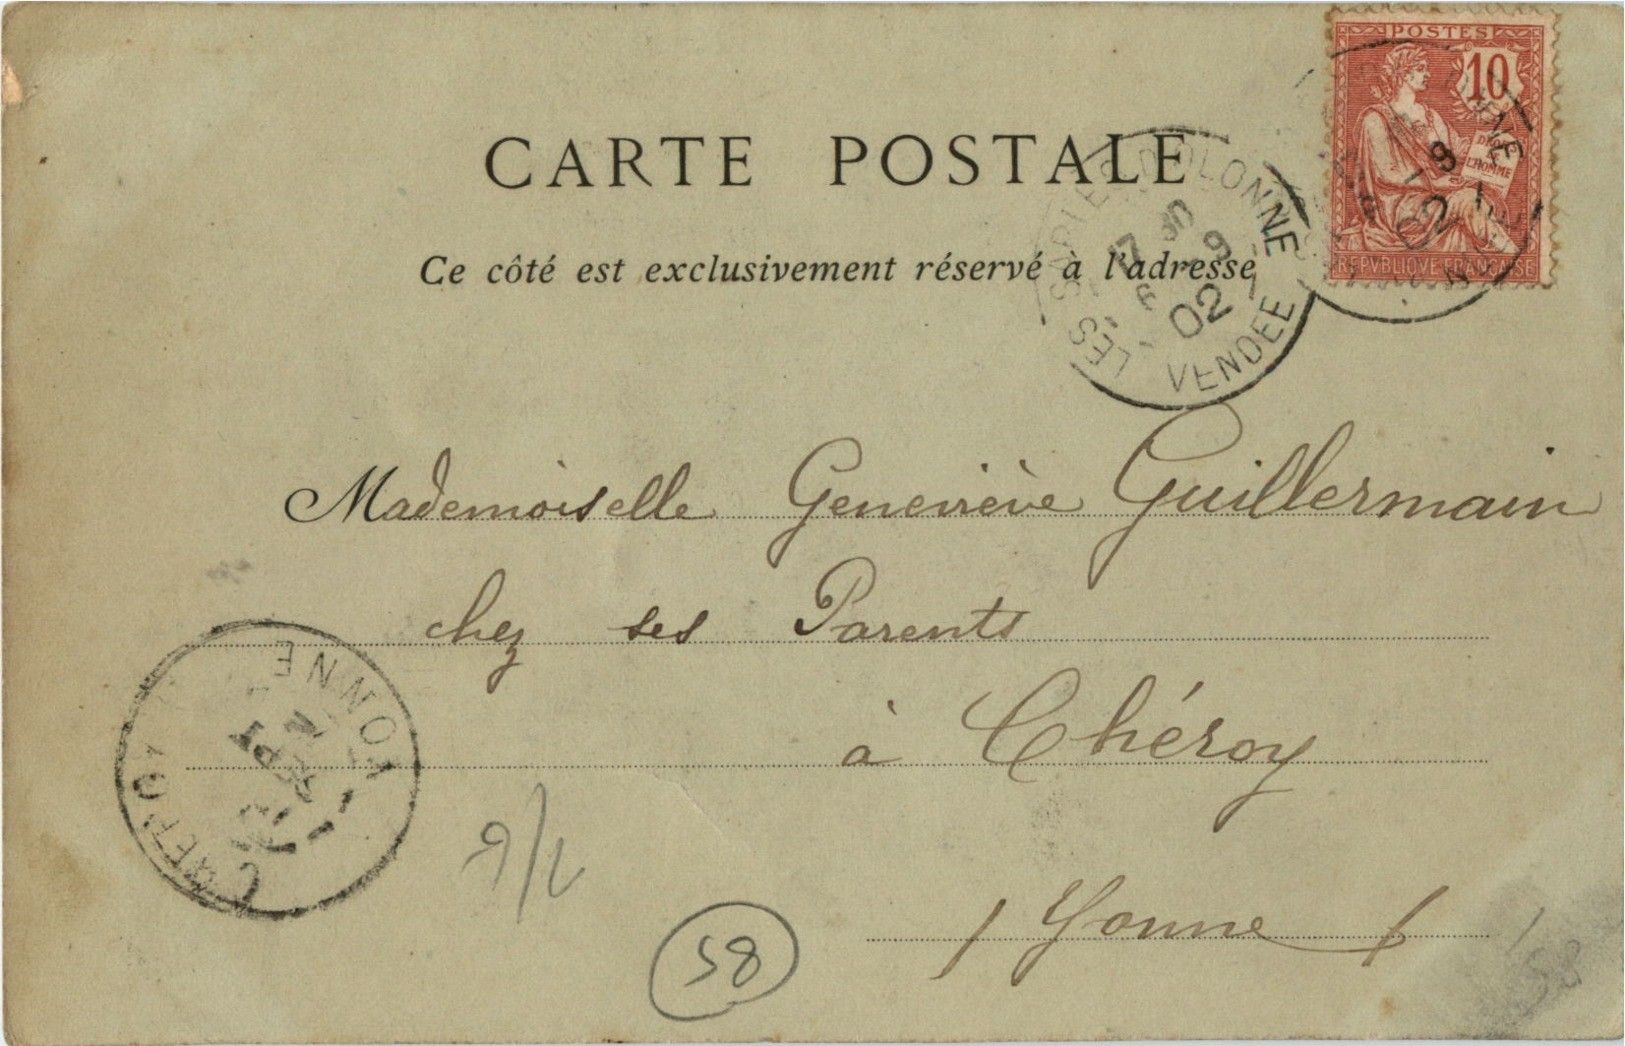 POSTES
10
DROITS DE L'HOMME
REPVBLIQVE FRANÇAISE
CARTE POSTALE
Ce côté est exclusivement réservé à l'adresse
LES SABLES D'OLONNE
9
02
VENDEE
8
02
Mademoiselle Geneviève Guillermain
chez ses Parents
à Chéroy
(Yonne)
CHEROY
YONNE
SEPT
58
58